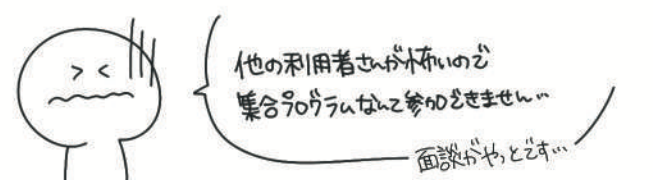 他の利用者さんが怖いので
集合プログラムなんて参加できません…
面談がやっとです…